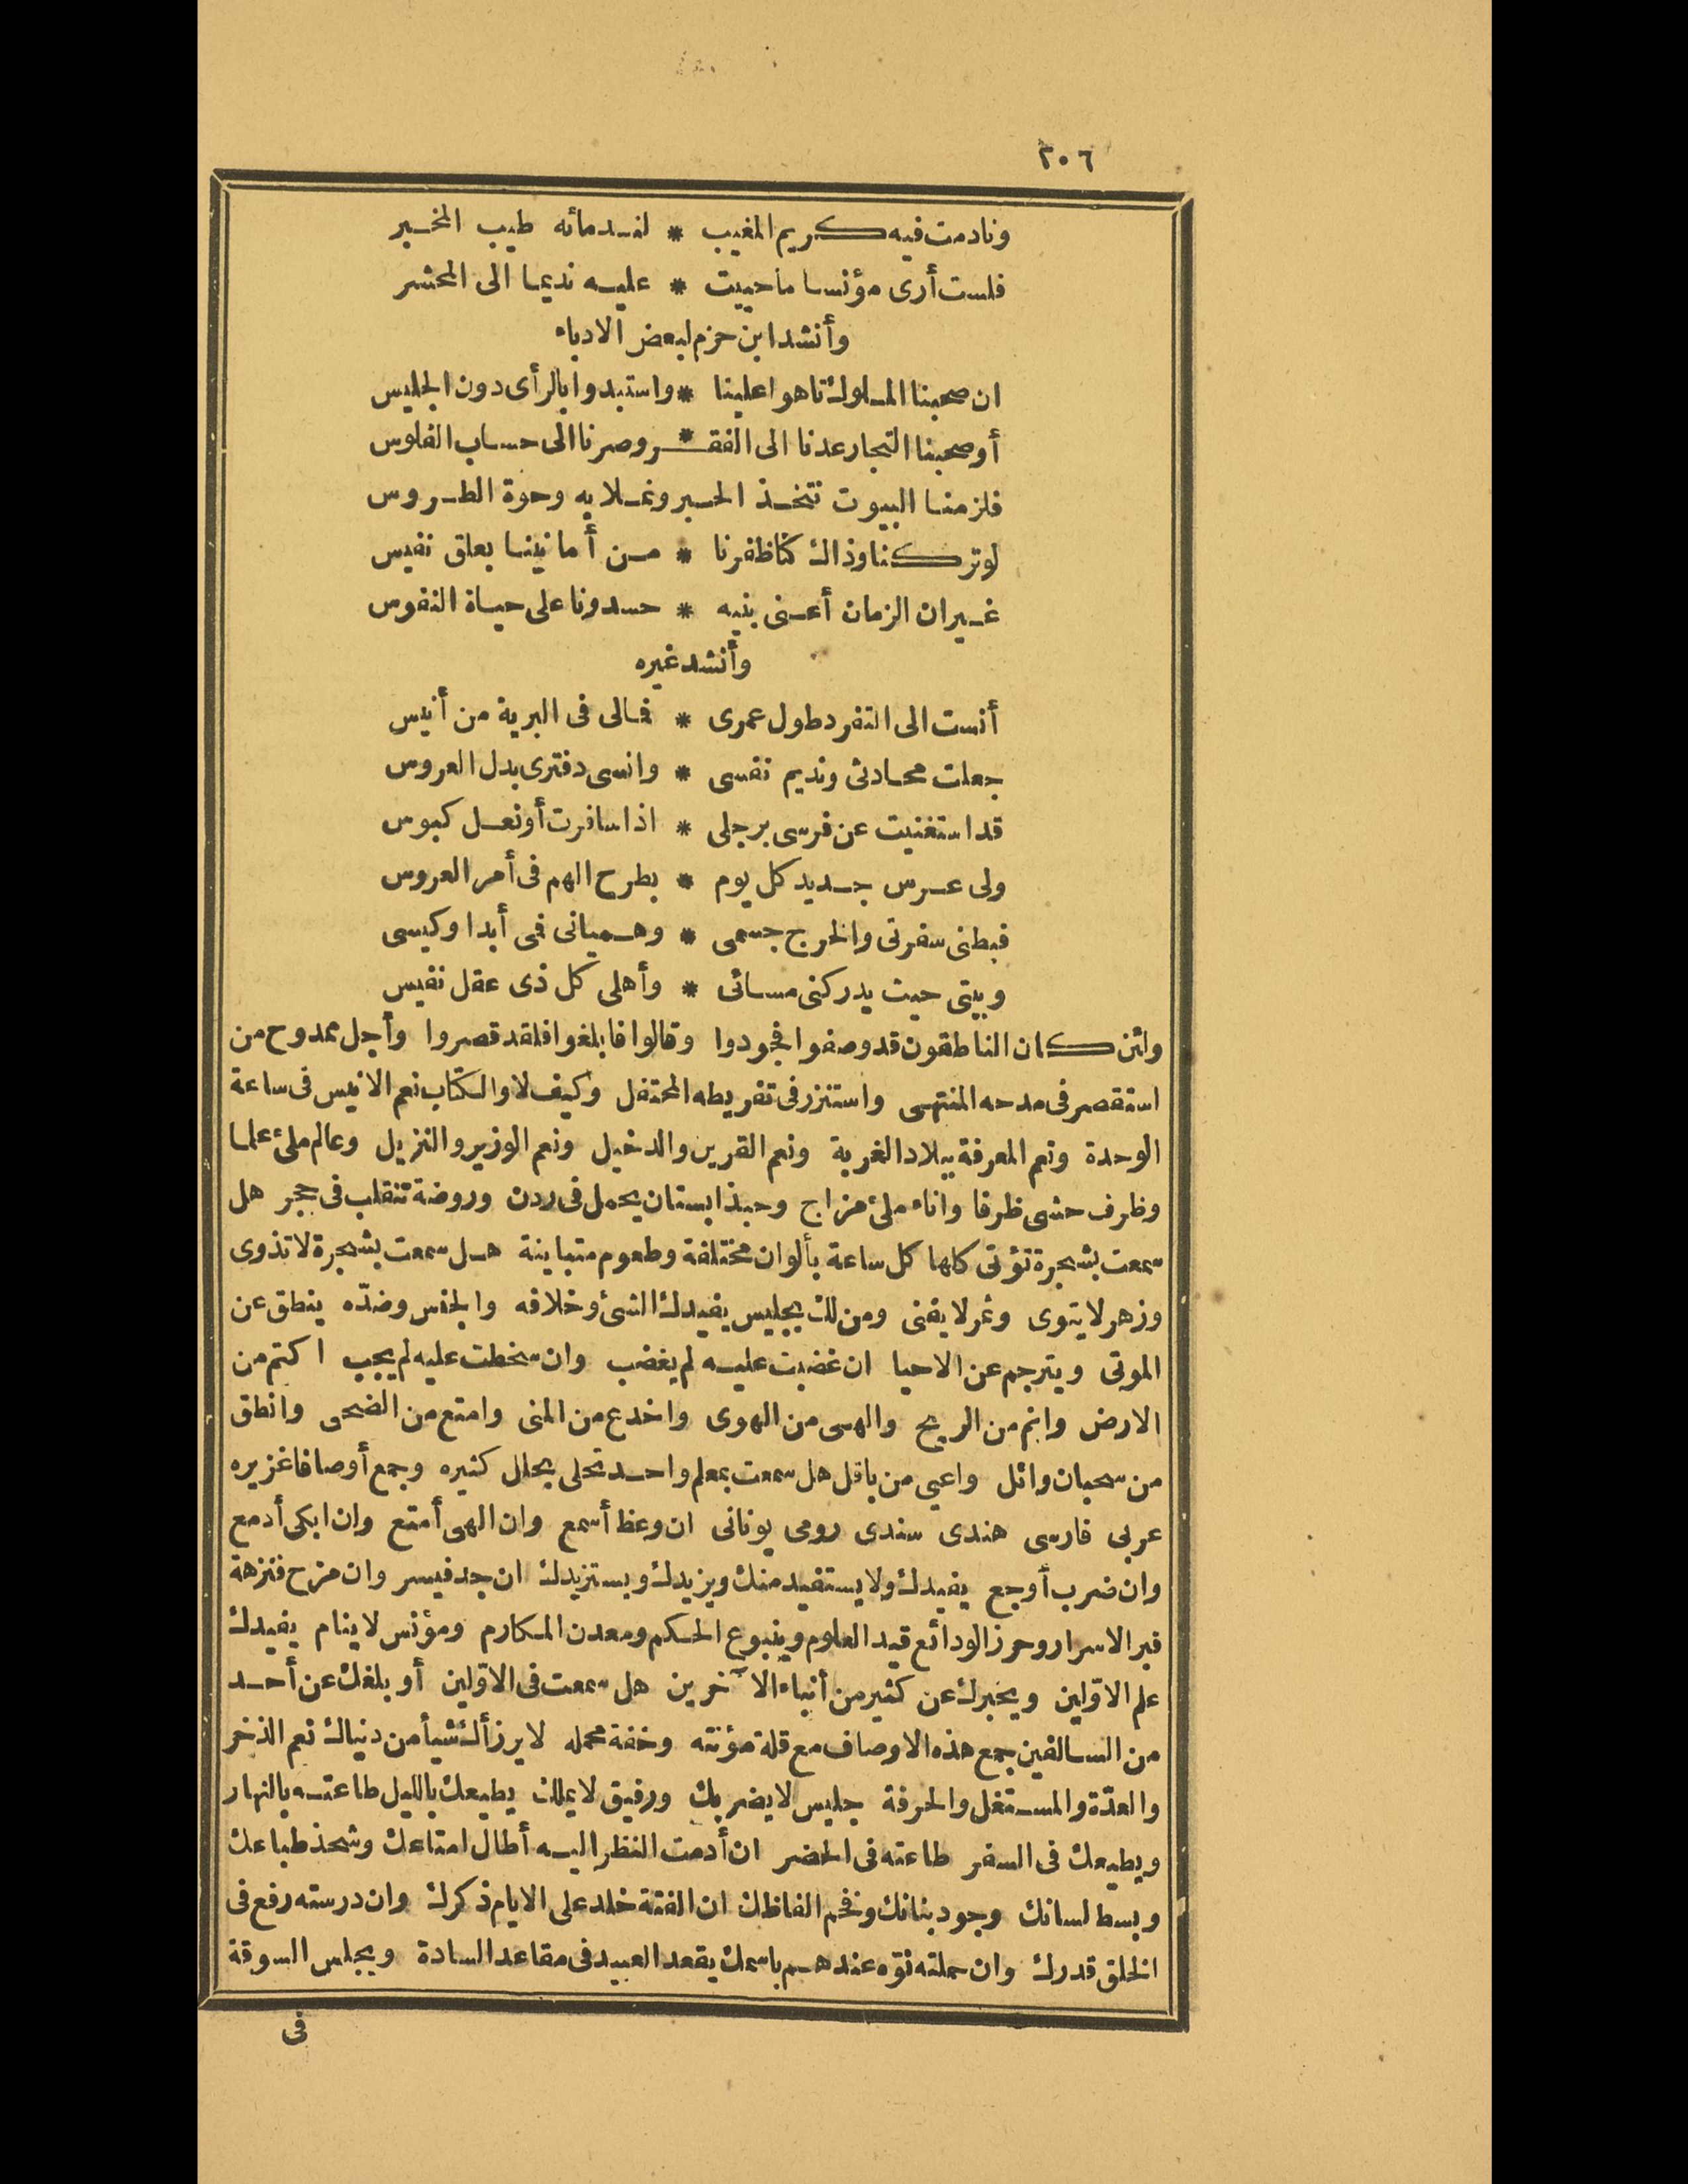 ٢٠٦
ونادمت فيه كريم المغيب * لندمائه طيب المخبر
فلست أرى مؤنسا ما حييت * عليه نديما الى المحشر
وأنشد ابن حزم لبعض الادباء
ان صحبنا الملوك تاهوا علينا * واستبدوا بالرأى دون الجليس
أو صحبنا التجار عدنا الى الفقـ * ـر وصرنا الى حساب الفلوس
فلزمنا البيوت نتخذ الحبر ونملا به وجوة الطروس
لو تركنا وذاك كنا ظفرنا * من أمانينا بعلق نفيس
غير ان الزمان أعنى بنيه * حسدونا على حياة النفوس
وأنشد غيره
أنست الى التفرد طول عمرى * فمالى فى البرية من أنيس
جعلت محادثى ونديم نفسى * وانسى دفترى بدل العروس
قد استغنيت عن فرسى برجلى * اذا سافرت أو نعل كبوس
ولى عرس جديد كل يوم * بطرح الهم فى أمر العروس
فبطنى سفرتى والخرج جسمى * وهميانى فمى أبدا وكيسى
وبيتى حيث يدركنى مسائى * وأهلى كل ذى عقل نفيس
ولئن كان الناطقون قد وصفوا فجودوا وقالوا فابلغوا فلقد قصروا وأجل ممدوح من
استقصر فى مدحه المنتهى واستنزر فى تفريطه المحتفل وكيف لا والكتاب نعم الانيس فى ساعة
الوحدة ونعم المعرفة ببلاد الغربة ونعم القرين والدخيل ونعم الوزير والنزيل وعالم ملئ علما
وظرف حشى ظرفا واناء ملئ مزاج وحبذا بستان يحمل فى ردن وروضة تنقلب فى حجر هل
سمعت بشجرة تؤتى كلها كل ساعة بألوان مختلفة وطعوم متباينة هل سمعت بشجرة لا تذوى
وزهر لا يتوى وثمر لا يفنى ومن لك بجليس يفيدك الشئ وخلافه والجنس وضدّه ينطق عن
الموتى ويترجم عن الاحيا ان غضبت عليه لم يغضب وان سخطت عليه لم يجب اكتم من
الارض وانم من الريح والهى من الهوى واخدع من المنى وامتع من الضحى وانطق
من سحبان وائل واعيى من باقل هل سمعت بمعلم واحد تحلى بحلال كثيره وجمع أوصافا غزيره
عربى فارسى هندى سندى رومى يونانى ان وعظ أسمع وان الهى أمتع وان ابكى أدمع
وان ضرب أوجع يفيدك ولا يستفيد منك ويزيدك ويستزيدك ان جد فيسر وان مزح فنزهة
قبر الاسرار وحرز الودائع قيد العلوم وينبوع الحكم ومعدن المكارم ومؤنس لا ينام يفيدك
علم الاوّلين ويخبرك عن كثير من أنباء الآخرين هل سمعت فى الاوّلين أو بلغك عن أحد
من السالفين جمع هذه الاوصاف مع قلة مؤنته وخفة محمله لا يرزأك شيأ من دنياك نعم الذخر
والعدّة والمستغل والحرفة جليس لا يضربك ورفيق لا يملك يطيعك بالليل طاعته بالنهار
ويطيعك فى السفر طاعته فى الحضر ان أدمت النظر اليه أطال امتاعك وشحذ طباعك
وبسط لسانك وجود بنانك ونخم الفاظك ان الفتة خلد على الايام ذكرك وان درسته رفع فى
الخلق قدرك وان حملته نوّه عندهم باسمك يقعد العبيد فى مقاعد السادة ويجلس السوقة
فى